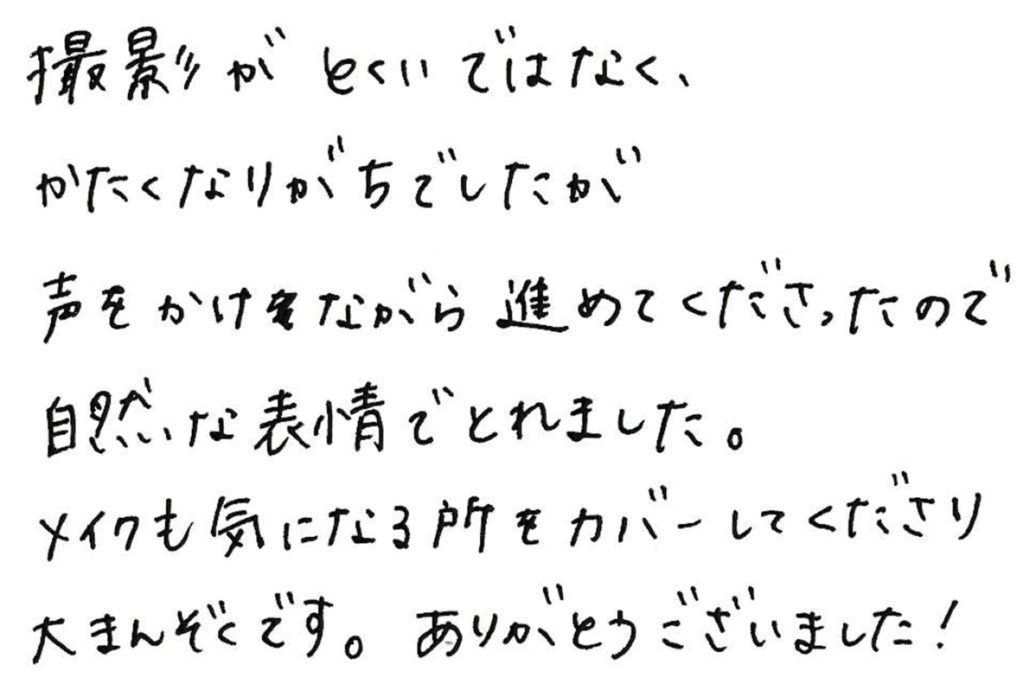 撮影がとくいではなく、
かたくなりがちでしたが
声をかけをながら進めてくださったので
自然な表情でとれました。
メイクも気になる所をカバーしてくださり
大まんぞくです。ありがとうございました!